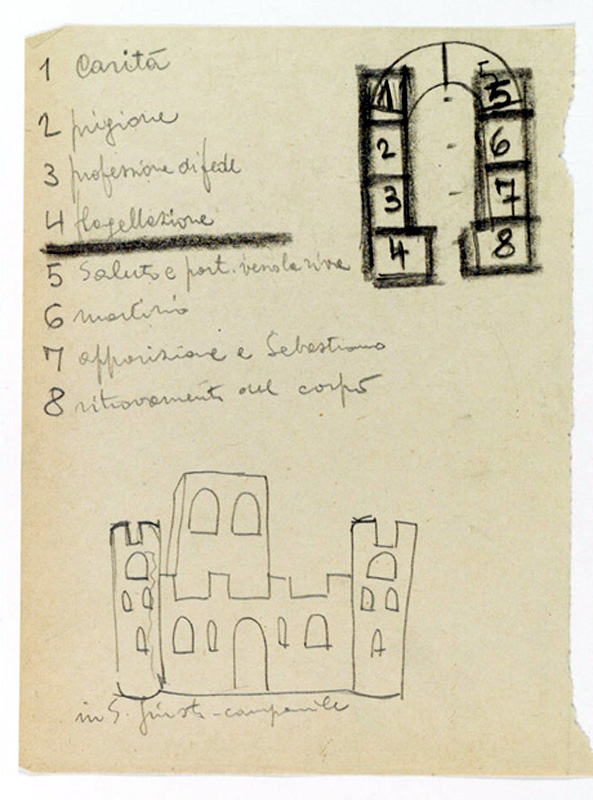 1 Carità
2 prigione
3 professione di fede
4 flagellazione
5 Saluto e part. verso la riva
6 martirio
7 apparizione a Sebastiano
8 ritrovamento del corpo
1 5
2 6
3 7
4 8
in S. Giusto - campanile